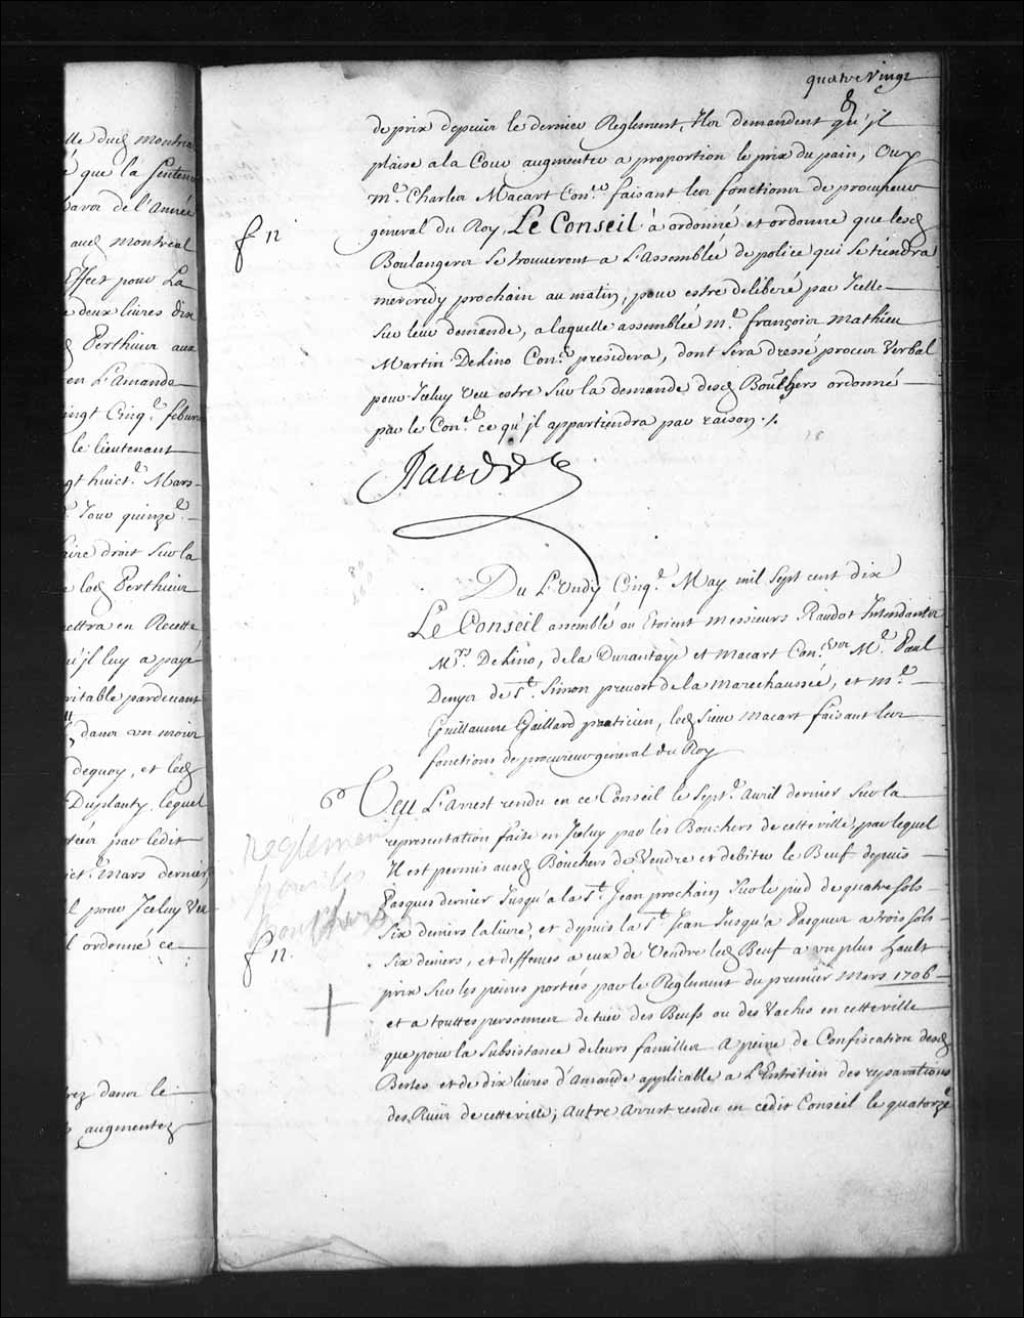 lle dud Montreal
é que la Sentence
avoir de l'Année
aud Montreal
Effect pour La
deux livres dix
Berthier aux
en L'amande
ingt Cinq.e febvrier
le lieutenant
gt huict.e Mars
Jour quinze.e
aire droit Sur la
led Berthier
ettra en Recette
qu'jl luy a payé
ritable pardevant
danx un mois
dequoy, et led
Duplanty lequel
par ledit
Mars dernier,
l pour Jceluy Veu
l ordonné ce
rez dans le
augmentez
quatre Vingt
de prix depuis le dernier Reglement, Ils demandent qu'jl
plaise a la Cour augmenter a proportion le prix du pain, Ouy
m.e Charles Macart Con.er faisant les fonctions de procureur
general du Roy, Le Conseil à ordonné et ordonne que lesd
Boulangers Se trouveront a L'Assemblée de police qui Se tiendra
mercredy prochain au matin, pour estre deliberé par Jcelle
Sur leur demande, a laquelle assemblée m.e françois Mathieu
Martin Delino Con.er presidera, dont Sera dressé procex Verbal
pour Jceluy Veu estre Sur la demande desd Boulgers ordonné
par le Con.el ce qu'jl appartiendra par raison ./.
f 12
Raudot
Du L'Undy Cinq.e May mil Sept cent dix
Le Conseil assemblé ou Etoient messieurs Raudot Intendant
M.rs Delino, de la Durantaye et Macart Con.ers M.e Paul
Denys de S.t Simon prevost de la Marechaussée, et m.e
Guillaume Gaillard praticien, led Sieur Macart faisant les
fonctions de procureur general du Roy
Veu L'Arrest rendu en ce Conseil le Sept.e Avril dernier Sur la
representation faite en Jceluy par les Bouchers de cette ville, par lequel
Il est permis ausd Bouchers de Vendre et debiter le Beuf depuis
Pasques dernier Jusqu'a la S.t Jean prochain Sur le pied de quatre Sols
Six deniers la livre, et depuis la S.t Jean Jusqu'a Pasques a trois Sols
Six deniers, et deffences a eux de Vendre led Beuf a un plus hault
prix Sur les peines portées par le Reglement du premier Mars 1706
et a touttes personnes de tuer des Beufs ou des Vaches en cette ville
que pour la Subsistance de leurs familles a peine de Confiscation desd
Bestes et de dix livres d'Amande applicable a L'Entretien des reparations
des Rües de cette ville; Autre Arrest rendu en cedit Conseil le quatorze
Reglement
pour les
bouchers
f 12.